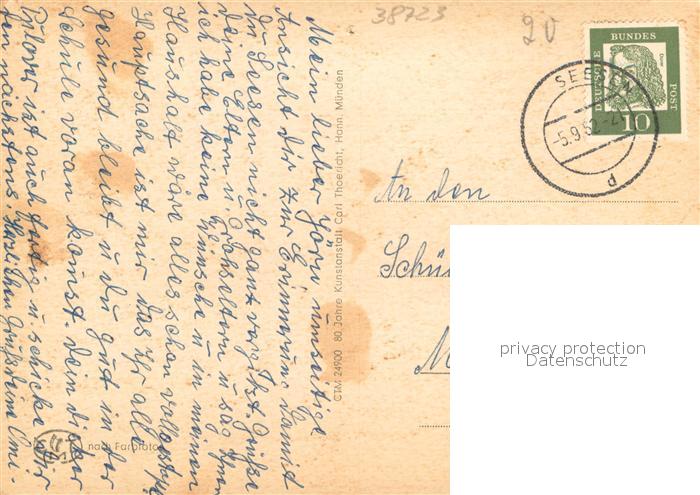 38723
20
DEUTSCHE
BUNDES
POST
Dürer
10
SEESEN
-5.9.62-21
d
An den
Schü
M
privacy protection
Datenschutz
CTM 24900 80 Jahre Kunstanstalt Carl Thoericht, Hann. Münden
nach Farbfoto
Mein lieber Jörn umseitige
Ansicht dir zur Erinnerung damit
du Seesen nicht ganz vergißt. Grüße
deine Eltern u. Großeltern u sag ihnen
ich habe keine Wünsche u in meinem
Haushalt wäre alles schon vollständig
Hauptsache ist mir das Ihr alle
gesund bleibt u du gut in der
Schule voran kommst. dein
ist auch fertig u. schicke wir
den nächstens Herzlichen Grüß dein Omi